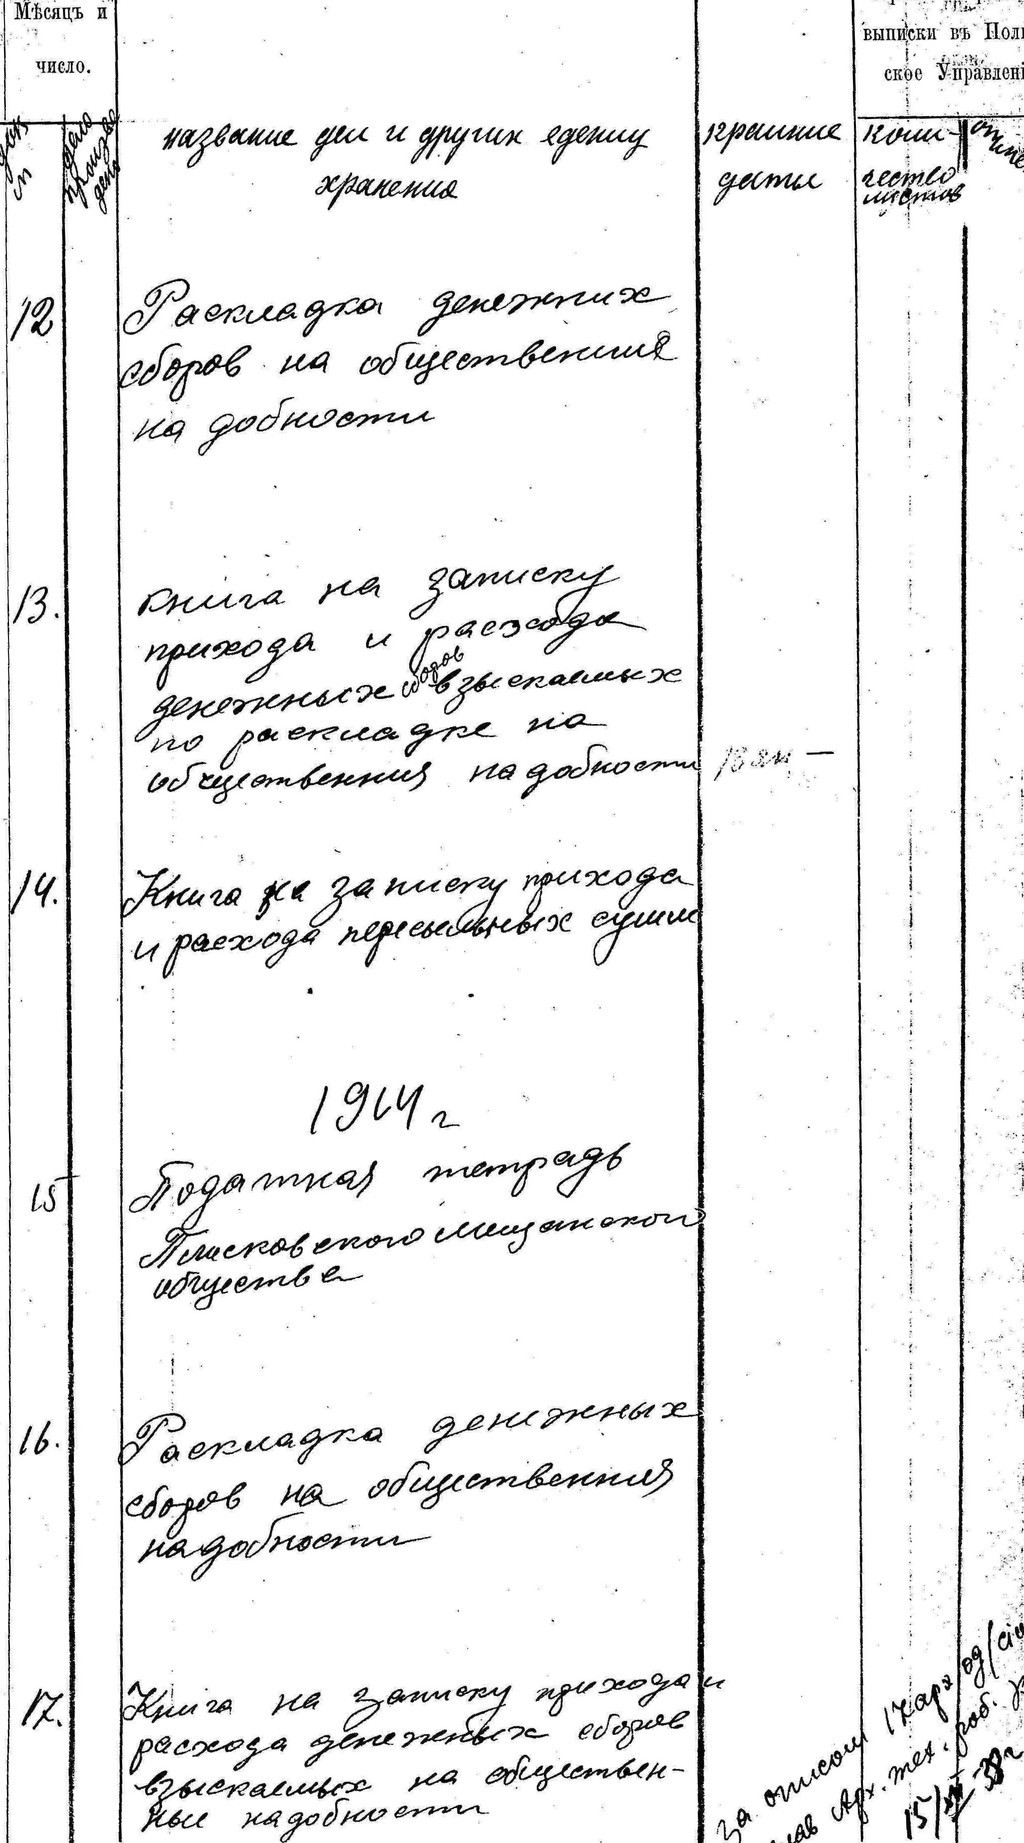 Мѣсяцъ и
число.
выписки въ
ское
дело
произво
название дел и других едениц
хранения
крайние
даты
коли-
чество
листов
12
Раскладка денежних
сборов на общественния
на добности
13.
книга на записку
прихода и расхода
денежных сборов взыскаемых
по раскладке на
общественния надобности
14.
Книга на записку прихода
и расхода пересыльных сумм
1914 г
15
Податная тетрадь
Плисковского мещанского
общества
16.
Раскладка денежных
сборов на общественния
надобности
17.
Книга на записку прихода и
расхода денежных сборов
взыскаемых на обществен-
ные надобности
за описом 17 арх од
арх. тех. роб.